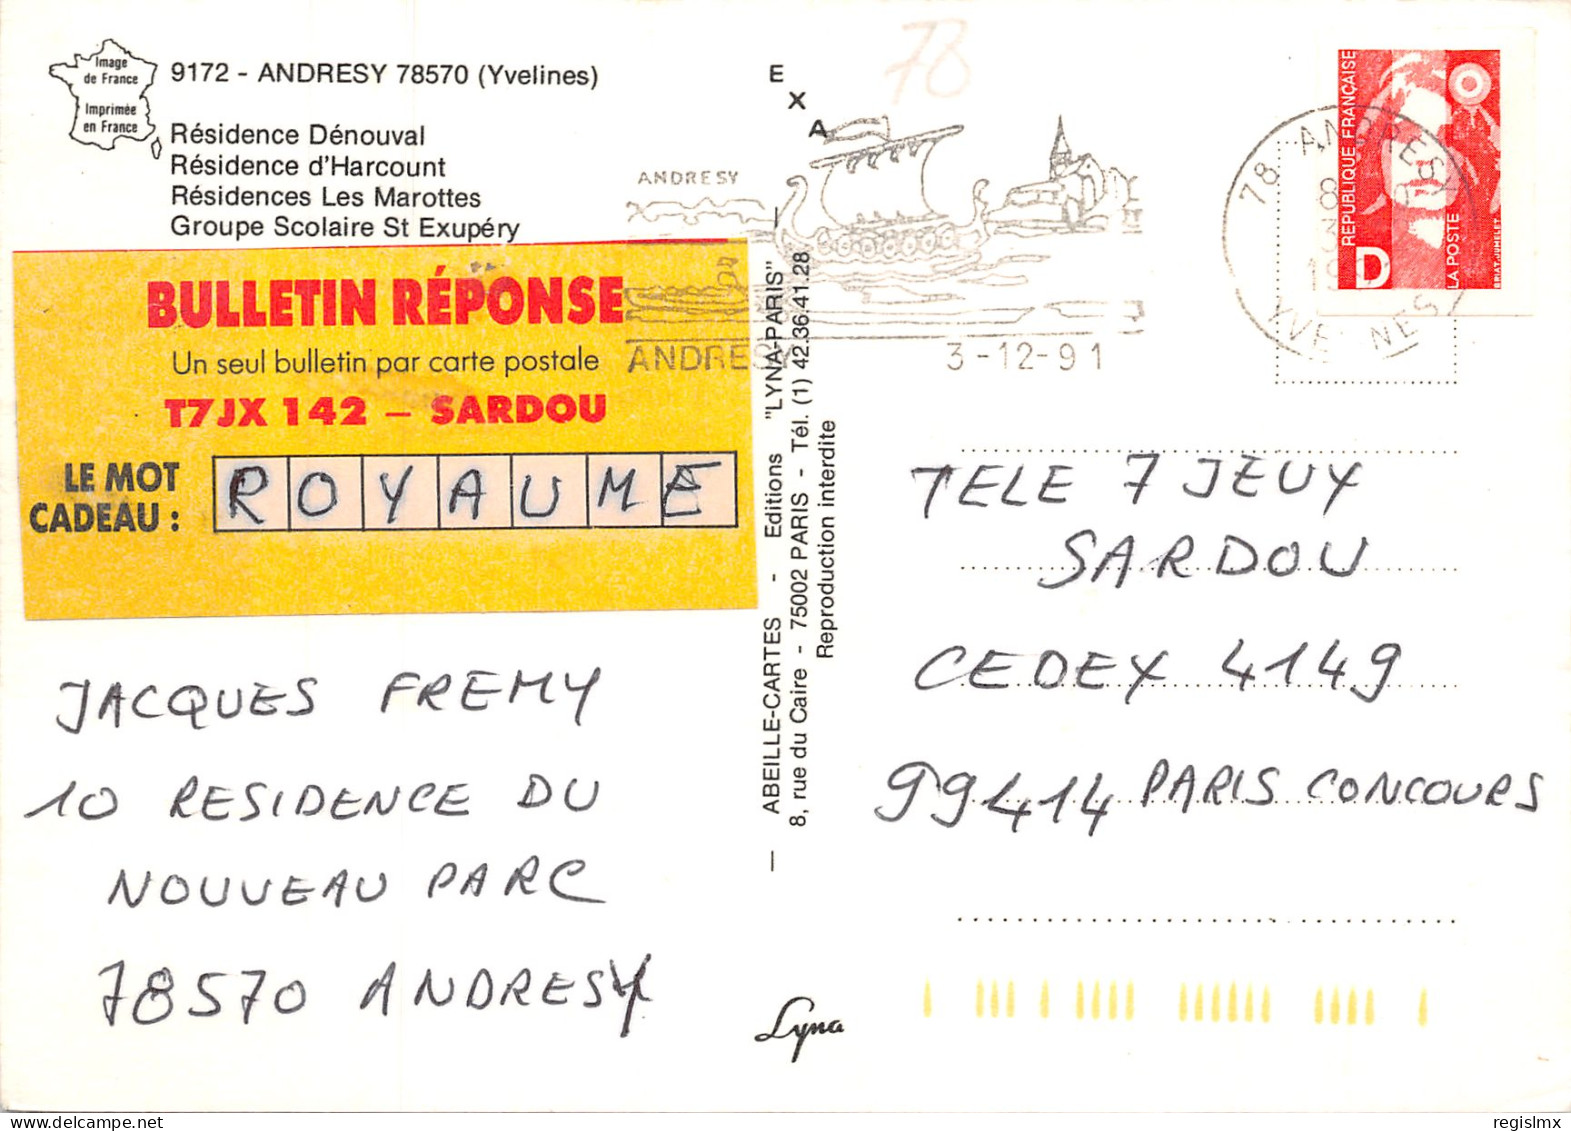 Image
de France
Imprimée
en France
9172 - ANDRESY 78570 (Yvelines)
Résidence Dénouval
Résidence d'Harcount
Résidences Les Marottes
Groupe Scolaire St Exupéry
BULLETIN RÉPONSE
Un seul bulletin par carte postale
T7JX 142 – SARDOU
LE MOT
CADEAU :
ROYAUME
JACQUES FREMY
10 RESIDENCE DU
NOUVEAU PARC
78570 ANDRESY
EXA
— ABEILLE-CARTES - Editions "LYNA-PARIS" —
8, rue du Caire - 75002 PARIS - Tél. (1) 42.36.41.28
Reproduction interdite
Lyna
78
ANDRESY
ANDRESY
3-12-91
78 ANDRESY
YVELINES
RÉPUBLIQUE FRANÇAISE
D
LA POSTE
BRIAT.JUMELET
TELE 7 JEUX
SARDOU
CEDEX 4149
99414 PARIS CONCOURS
regislmx
delcampe.net